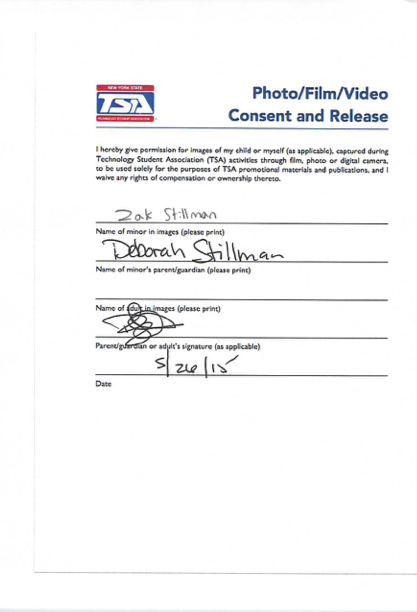 NEW YORK STATE
TSA
TECHNOLOGY STUDENT ASSOCIATION
Photo/Film/Video
Consent and Release
I hereby give permission for images of my child or myself (as applicable), captured during
Technology Student Association (TSA) activities through film, photo or digital camera,
to be used solely for the purposes of TSA promotional materials and publications, and I
waive any rights of compensation or ownership thereto.
Zak Stillman
Name of minor in images (please print)
Deborah Stillman
Name of minor's parent/guardian (please print)
Name of adult in images (please print)
Parent/guardian or adult's signature (as applicable)
5/26/15
Date